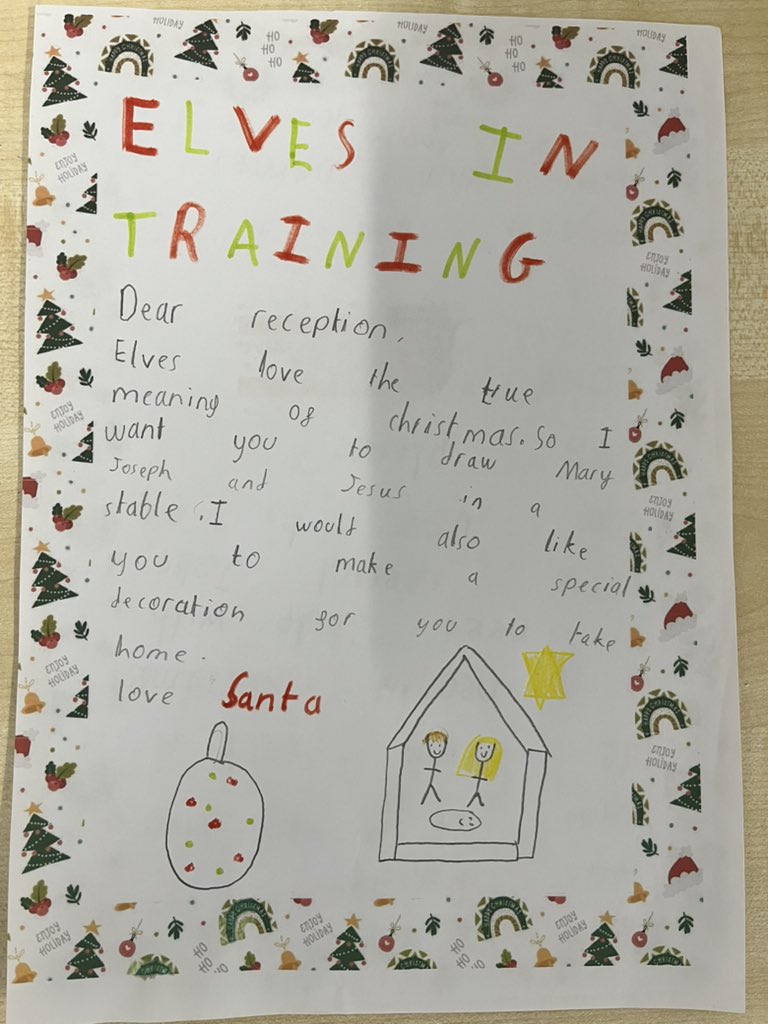 HOLIDAY
HO
HO
HO
HOLIDAY
ELVES IN
TRAINING
Dear reception,
Elves love the true
meaning of christmas. So I
want you to draw Mary
Joseph and Jesus in a
stable. I would also like
you to make a special
decoration for you to take
home.
love Santa
ENJOY
HOLIDAY
ENJOY
HOLIDAY
ENJOY
HOLIDAY
ENJOY
HOLIDAY
ENJOY
HOLIDAY
ENJOY
HOLIDAY
ENJOY
HOLIDAY
ENJOY
HOLIDAY
HO
HO
HO
ENJOY
HOLIDAY